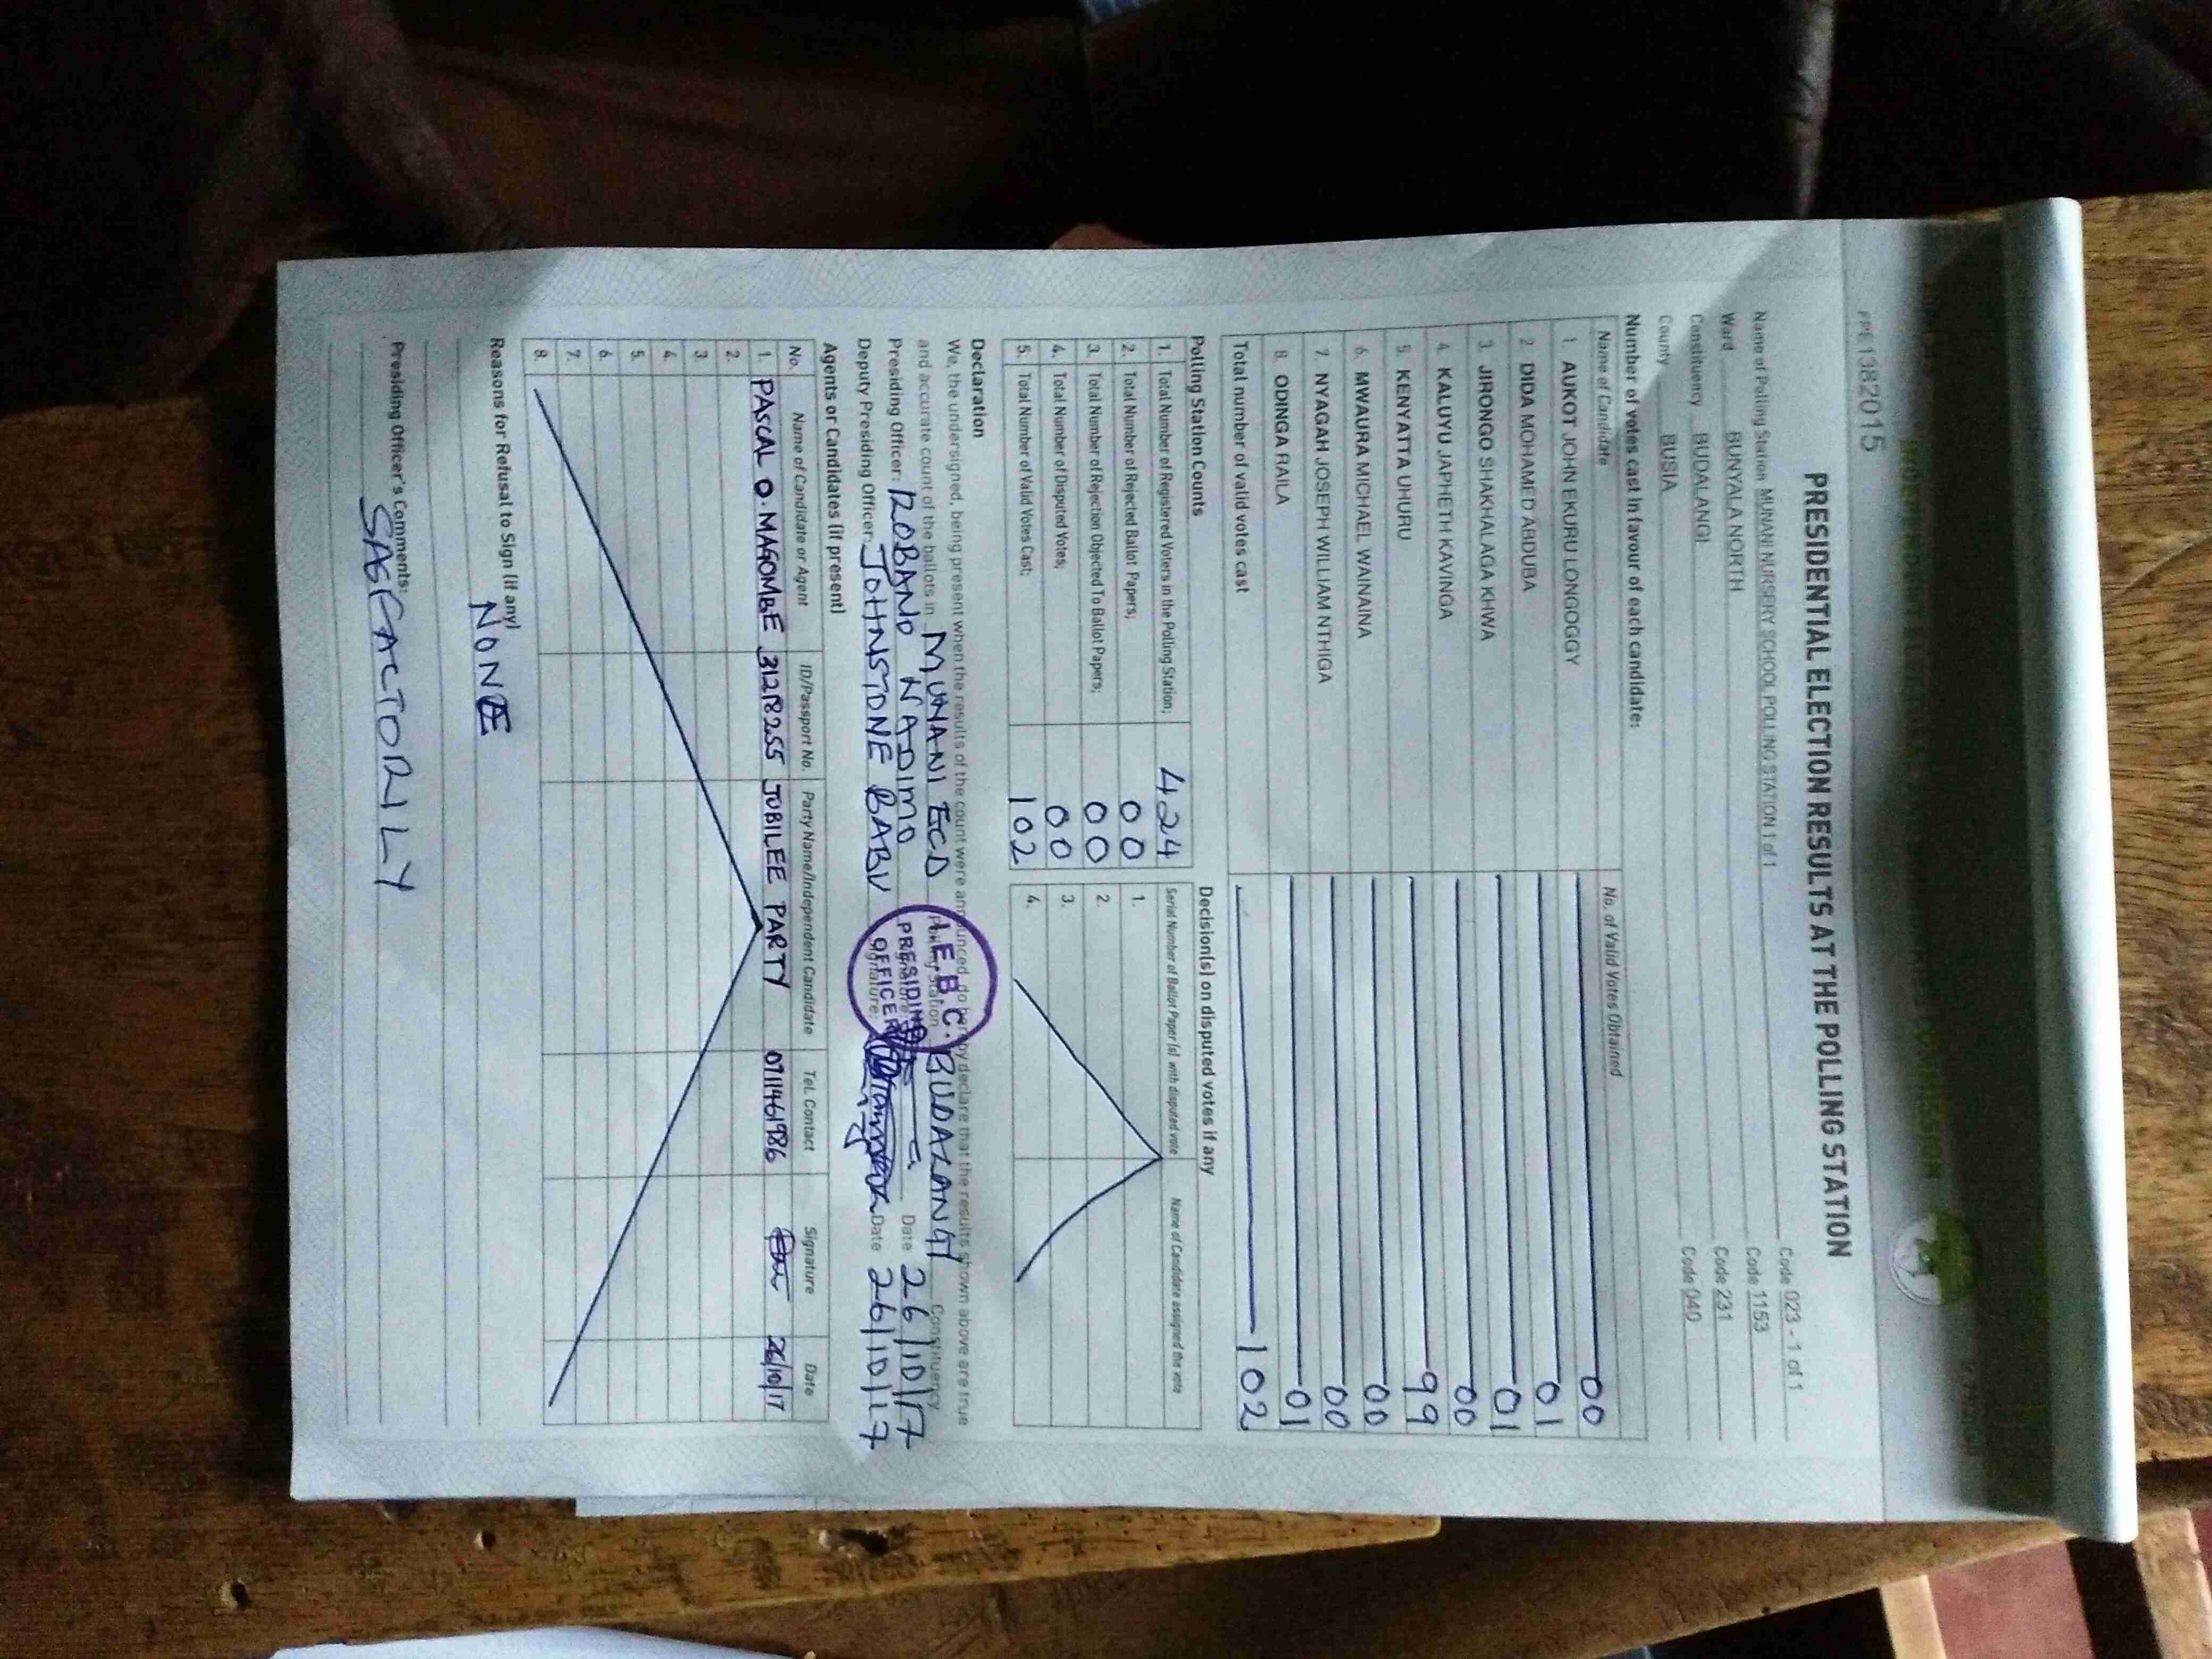 FPE 1382015
PRESIDENTIAL ELECTION RESULTS AT THE POLLING STATION
Name of Polling Station MUNANI NURSERY SCHOOL POLLING STATION 1 of 1 Code 023 - 1 of 1
Ward BUNYALA NORTH Code 1153
Constituency BUDALANGI Code 231
County BUSIA Code 040
Number of votes cast in favour of each candidate:
Name of Candidate No. of Valid Votes Obtained
1. AUKOT JOHN EKURU LONGOGGY 00
2. DIDA MOHAMED ABDUBA 01
3. JIRONGO SHAKHALAGA KHWA 01
4. KALUYU JAPHETH KAVINGA 00
5. KENYATTA UHURU 99
6. MWAURA MICHAEL WAINAINA 00
7. NYAGAH JOSEPH WILLIAM NTHIGA 00
8. ODINGA RAILA 01
Total number of valid votes cast 102
Polling Station Counts
1. Total Number of Registered Voters in the Polling Station; 424
2. Total Number of Rejected Ballot Papers; 00
3. Total Number of Rejection Objected To Ballot Papers; 00
4. Total Number of Disputed Votes; 00
5. Total Number of Valid Votes Cast; 102
Decision(s) on disputed votes if any
Serial Number of Ballot Paper (s) with disputed vote Name of Candidate assigned the vote
1.
2.
3.
4.
Declaration
We, the undersigned, being present when the results of the count were announced, do hereby declare that the results shown above are true
and accurate count of the ballots in MUNANI ECD Polling Station BUDALANGI Constituency
Presiding Officer: ROBANO NADIMO Signature: Date 26/10/17
Deputy Presiding Officer: JOHNSTONE BABU Signature: Date 26/10/17
I.E.B.C.
PRESIDING
OFFICER
Agents or Candidates (if present)
No. Name of Candidate or Agent ID/Passport No. Party Name/Independent Candidate Tel. Contact Signature Date
1. PASCAL O. MAGOMBE 31218255 JUBILEE PARTY 0711461986 26/10/17
2.
3.
4.
5.
6.
7.
8.
Reasons for Refusal to Sign (if any)
NONE
Presiding Officer's Comments:
SASFACTORILY